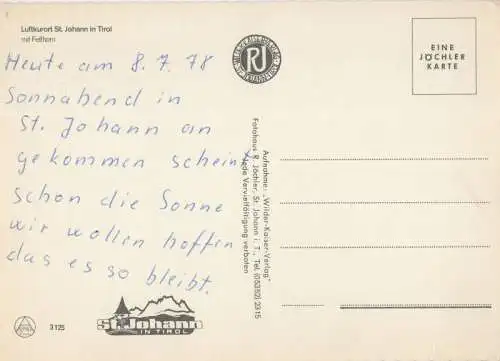 Luftkurort St. Johann in Tirol
mit Fellhorn
Heute am 8.7.78
Sonnabend in
St. Johann an
gekommen scheint
schon die Sonne
wir wollen hoffen
das es so bleibt.
St. Johann
IN TIROL
3125
RJ
Aufnahme: „Wilder-Kaiser-Verlag"
Fotohaus R. Jöchler, St. Johann i. T., Tel. (05352) 2315
Jede Vervielfältigung verboten
EINE
JÖCHLER
KARTE